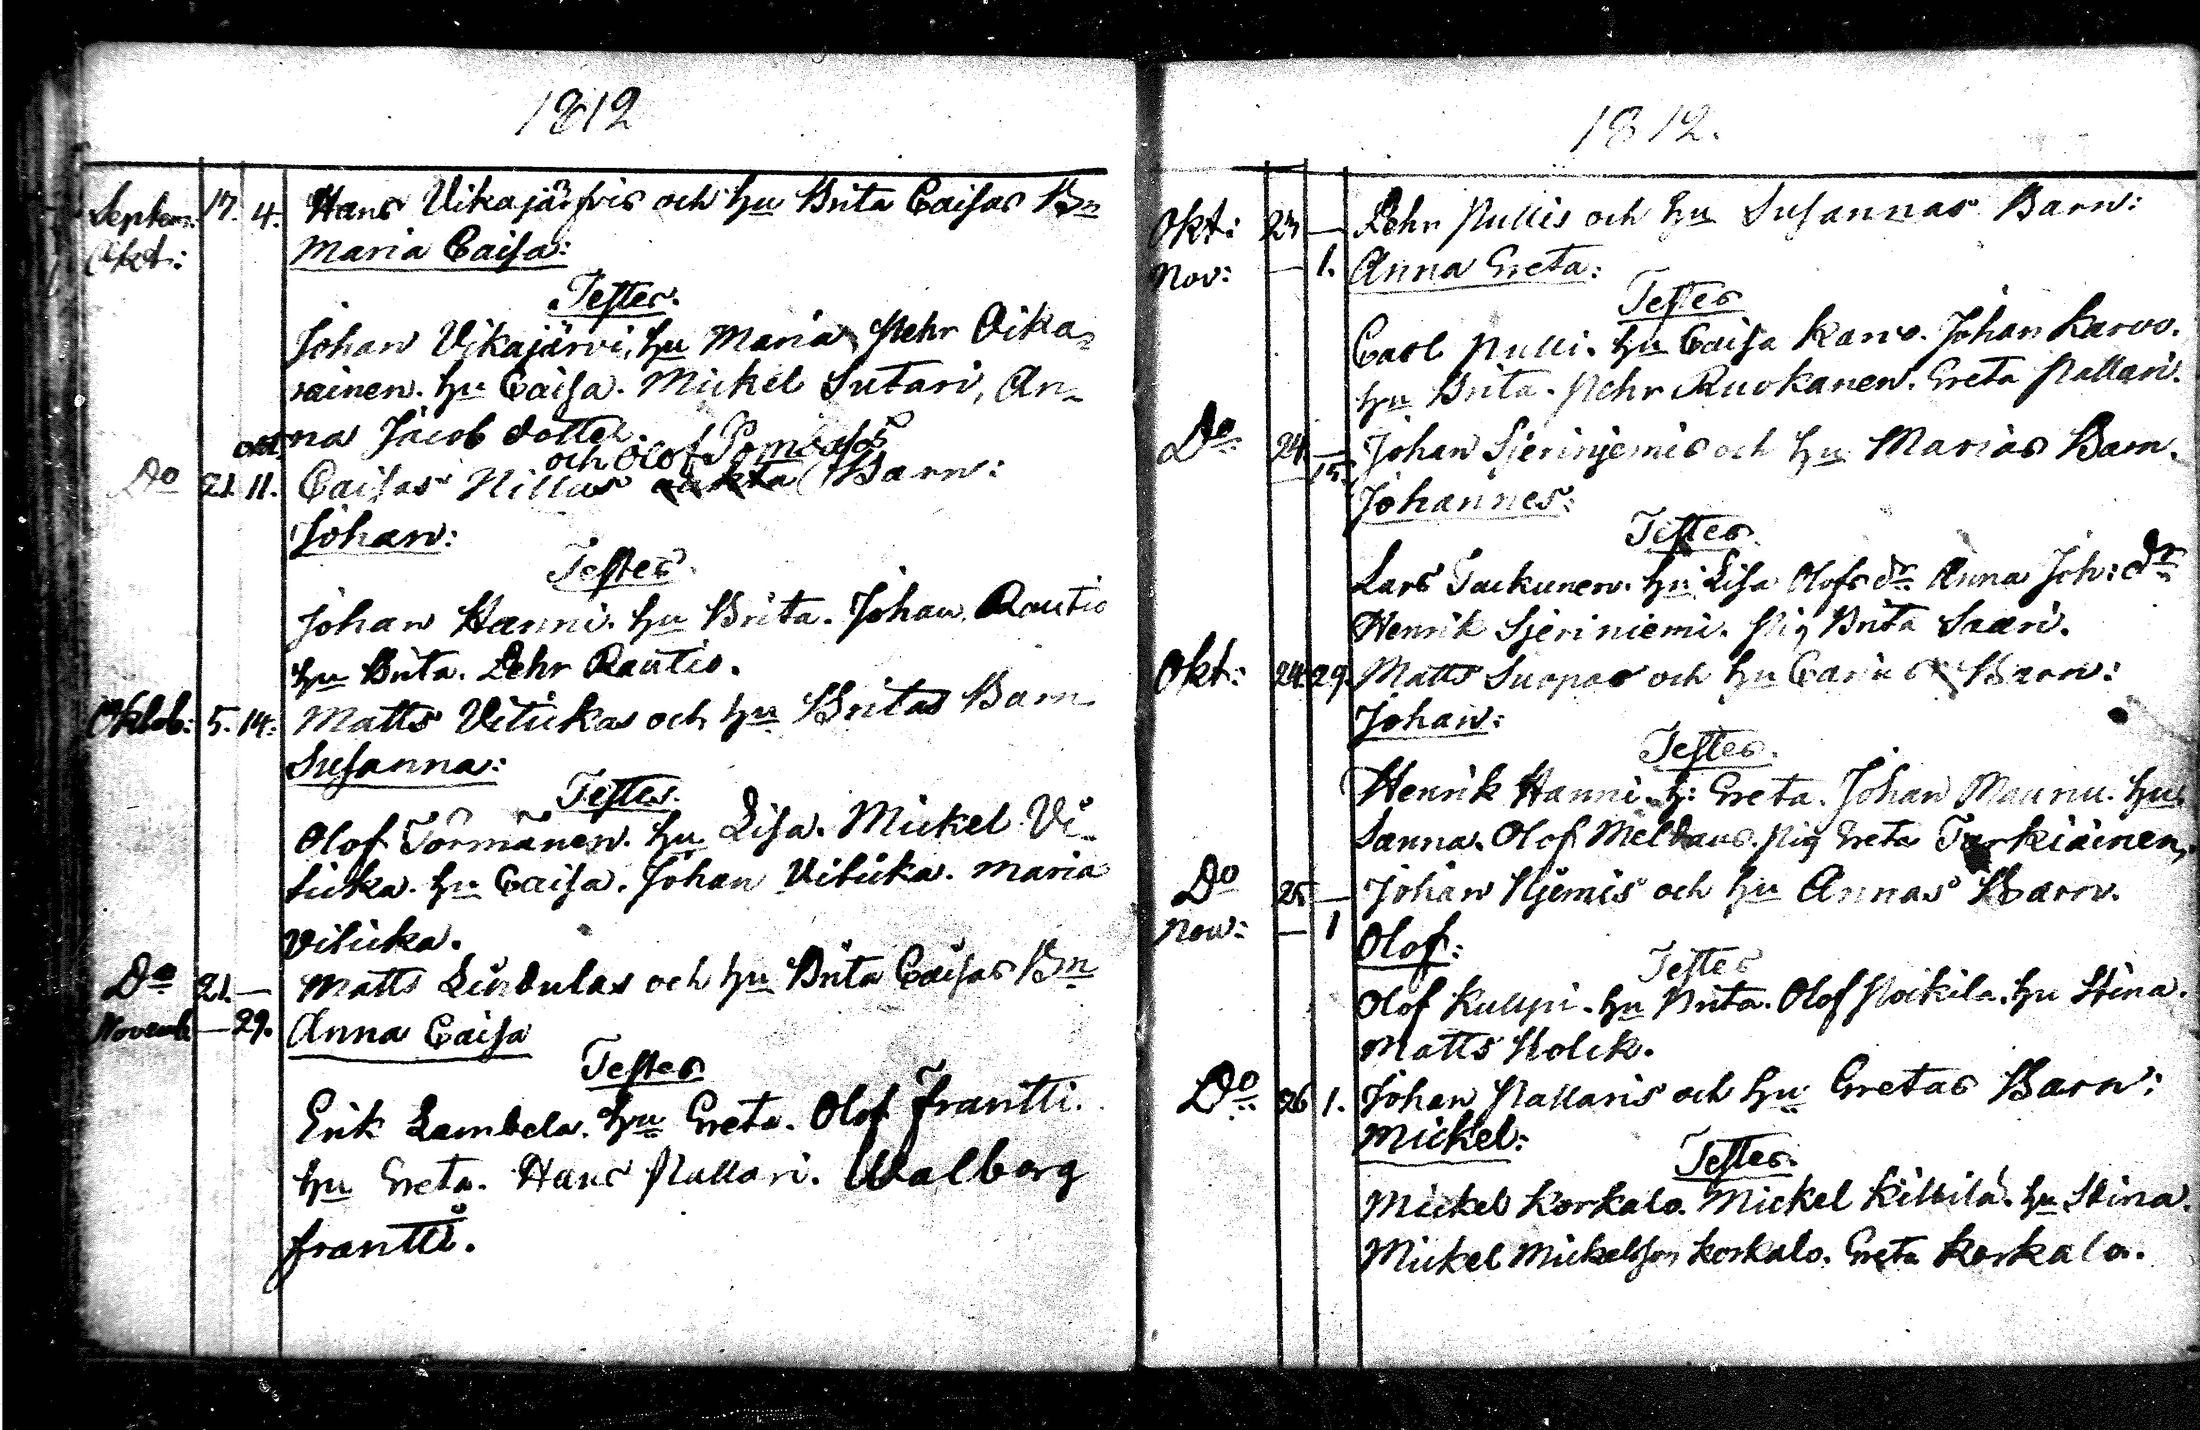 1812
Septem. 17. 4. Hans Vikajärfvis och hu Brita Caisas Bn
Okt: Maria Caisa:
Testes.
Johan Vikajärvi, hu Maria, Pehr Oika-
rainen. hu Caisa. Mickel Sutari, An-
okt na Jacob dotter.
och Olof Pomåses
Do 21. 11. Caisas Nillas Barn:
Johan:
Testes.
Johan Hanni. hu Brita. Johan Rautio
hu Brita. Pehr Rautio.
Oktob: 5. 14. Matts Vitickas och hu Britas Barn
Susanna:
Testes.
Olof Törmänen. hu Lisa. Mickel Vi-
ticka. hu Caisa. Johan Viticka. Maria
Viticka.
Do 21. — Matts Lindulas och hu Brita Caisas Bn
Novemb — 29. Anna Caisa
Testes
Erik Lambela. hu Greta. Olof Frantti.
hu Greta. Hans Pallari. Walborg
Frantti.
1812.
Okt: 23 — Pehr Pullis och hu Susannas Barn:
Nov: — 1. Anna Greta:
Testes
Carl Pulli. hu Caisa Karvo. Johan Karvo.
hu Brita. Pehr Ruokanen. Greta Pallari.
Do 24. — Johan Sjerinjemis och hu Marias Barn.
15. Johannes:
Testes.
Lars Tackunen. hu Lisa Olofsdr Anna Joh: dr
Henrik Sjeriniemi. Pig Brita Saari.
Okt: 24. 29. Matts Suopas och hu Carins Barn:
Johan:
Testes.
Henrik Hanni. h: Greta. Johan Maunu. hu
Sanna. Olof Meldaus. Pig Greta Tarkiainen.
Do 25 — Johan Njemis och hu Annas Barn.
Nov: — 1 Olof:
Testes
Olof Kulppi. hu Brita. Olof Poikila. hu Stina.
Matts Holck.
Do 26 1. Johan Pallaris och hu Gretas Barn:
Mickel:
Testes.
Mickel Korkalo. Mickel Kittilä. hu Stina.
Mickel Mickelsson Korkalo. Greta Korkalo.